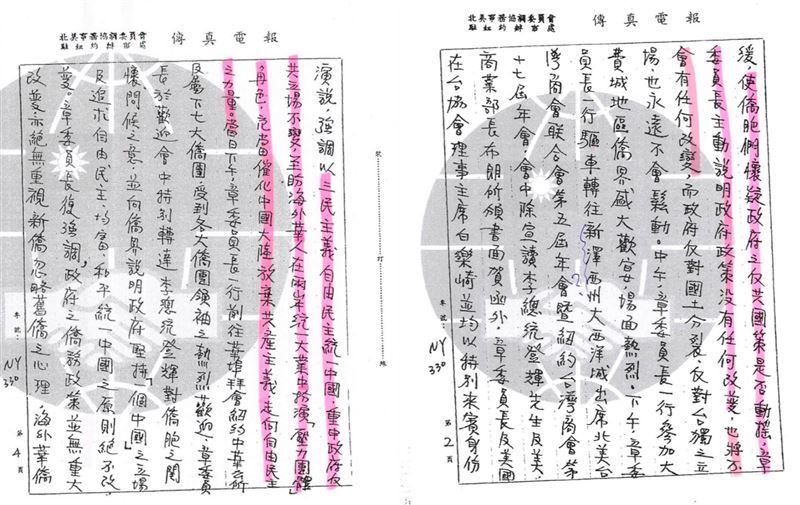 北美事務協調委員會
駐紐約辦事處
傳真電報
後，使僑胞們懷疑政府之反共國策是否動搖，章
委員長主動說明政府政策沒有任何改變，也將不
會有任何改變，而政府反對國土分裂、反對台獨之立
場也永遠不會鬆動。中午，章委員長一行參加大
費城地區僑界盛大歡宴，場面熱烈。下午，章委
員長一行驅車轉往新澤西州大西洋城出席北美台
灣商會聯合會第五屆年會暨紐約台灣商會第
十七屆年會，會中除宣讀李總統登輝先生及美
商業部長布朗所頒書面賀函外，章委員長及美國
在台協會理事主席白樂崎並均以特別來賓身份
來號：NY 330
第2頁
北美事務協調委員會
駐紐約辦事處
傳真電報
演說，強調以三民主義、自由民主統一中國，重申政府反
共立場不變，至盼海外華人在兩岸統一大業中扮演「壓力團體」
角色，充當催化中國大陸放棄共產主義，走向自由民主
之力量。當日下午，章委員長一行前往華埠拜會紐約中華公所
及屬下七大僑團受到各大僑團領袖之熱烈歡迎，章委員
長於歡迎會中特別轉達李總統登輝對僑胞之關
懷、問候之意，並向僑界說明政府堅持「一個中國」之立場
及追求自由、民主、均富、和平統一中國之原則絕不改
變。章委員長復強調，政府之僑務政策並無重大
改變，亦絕無重視新僑忽略舊僑之心理，海外華僑
來號：NY 330
第4頁
裝訂線